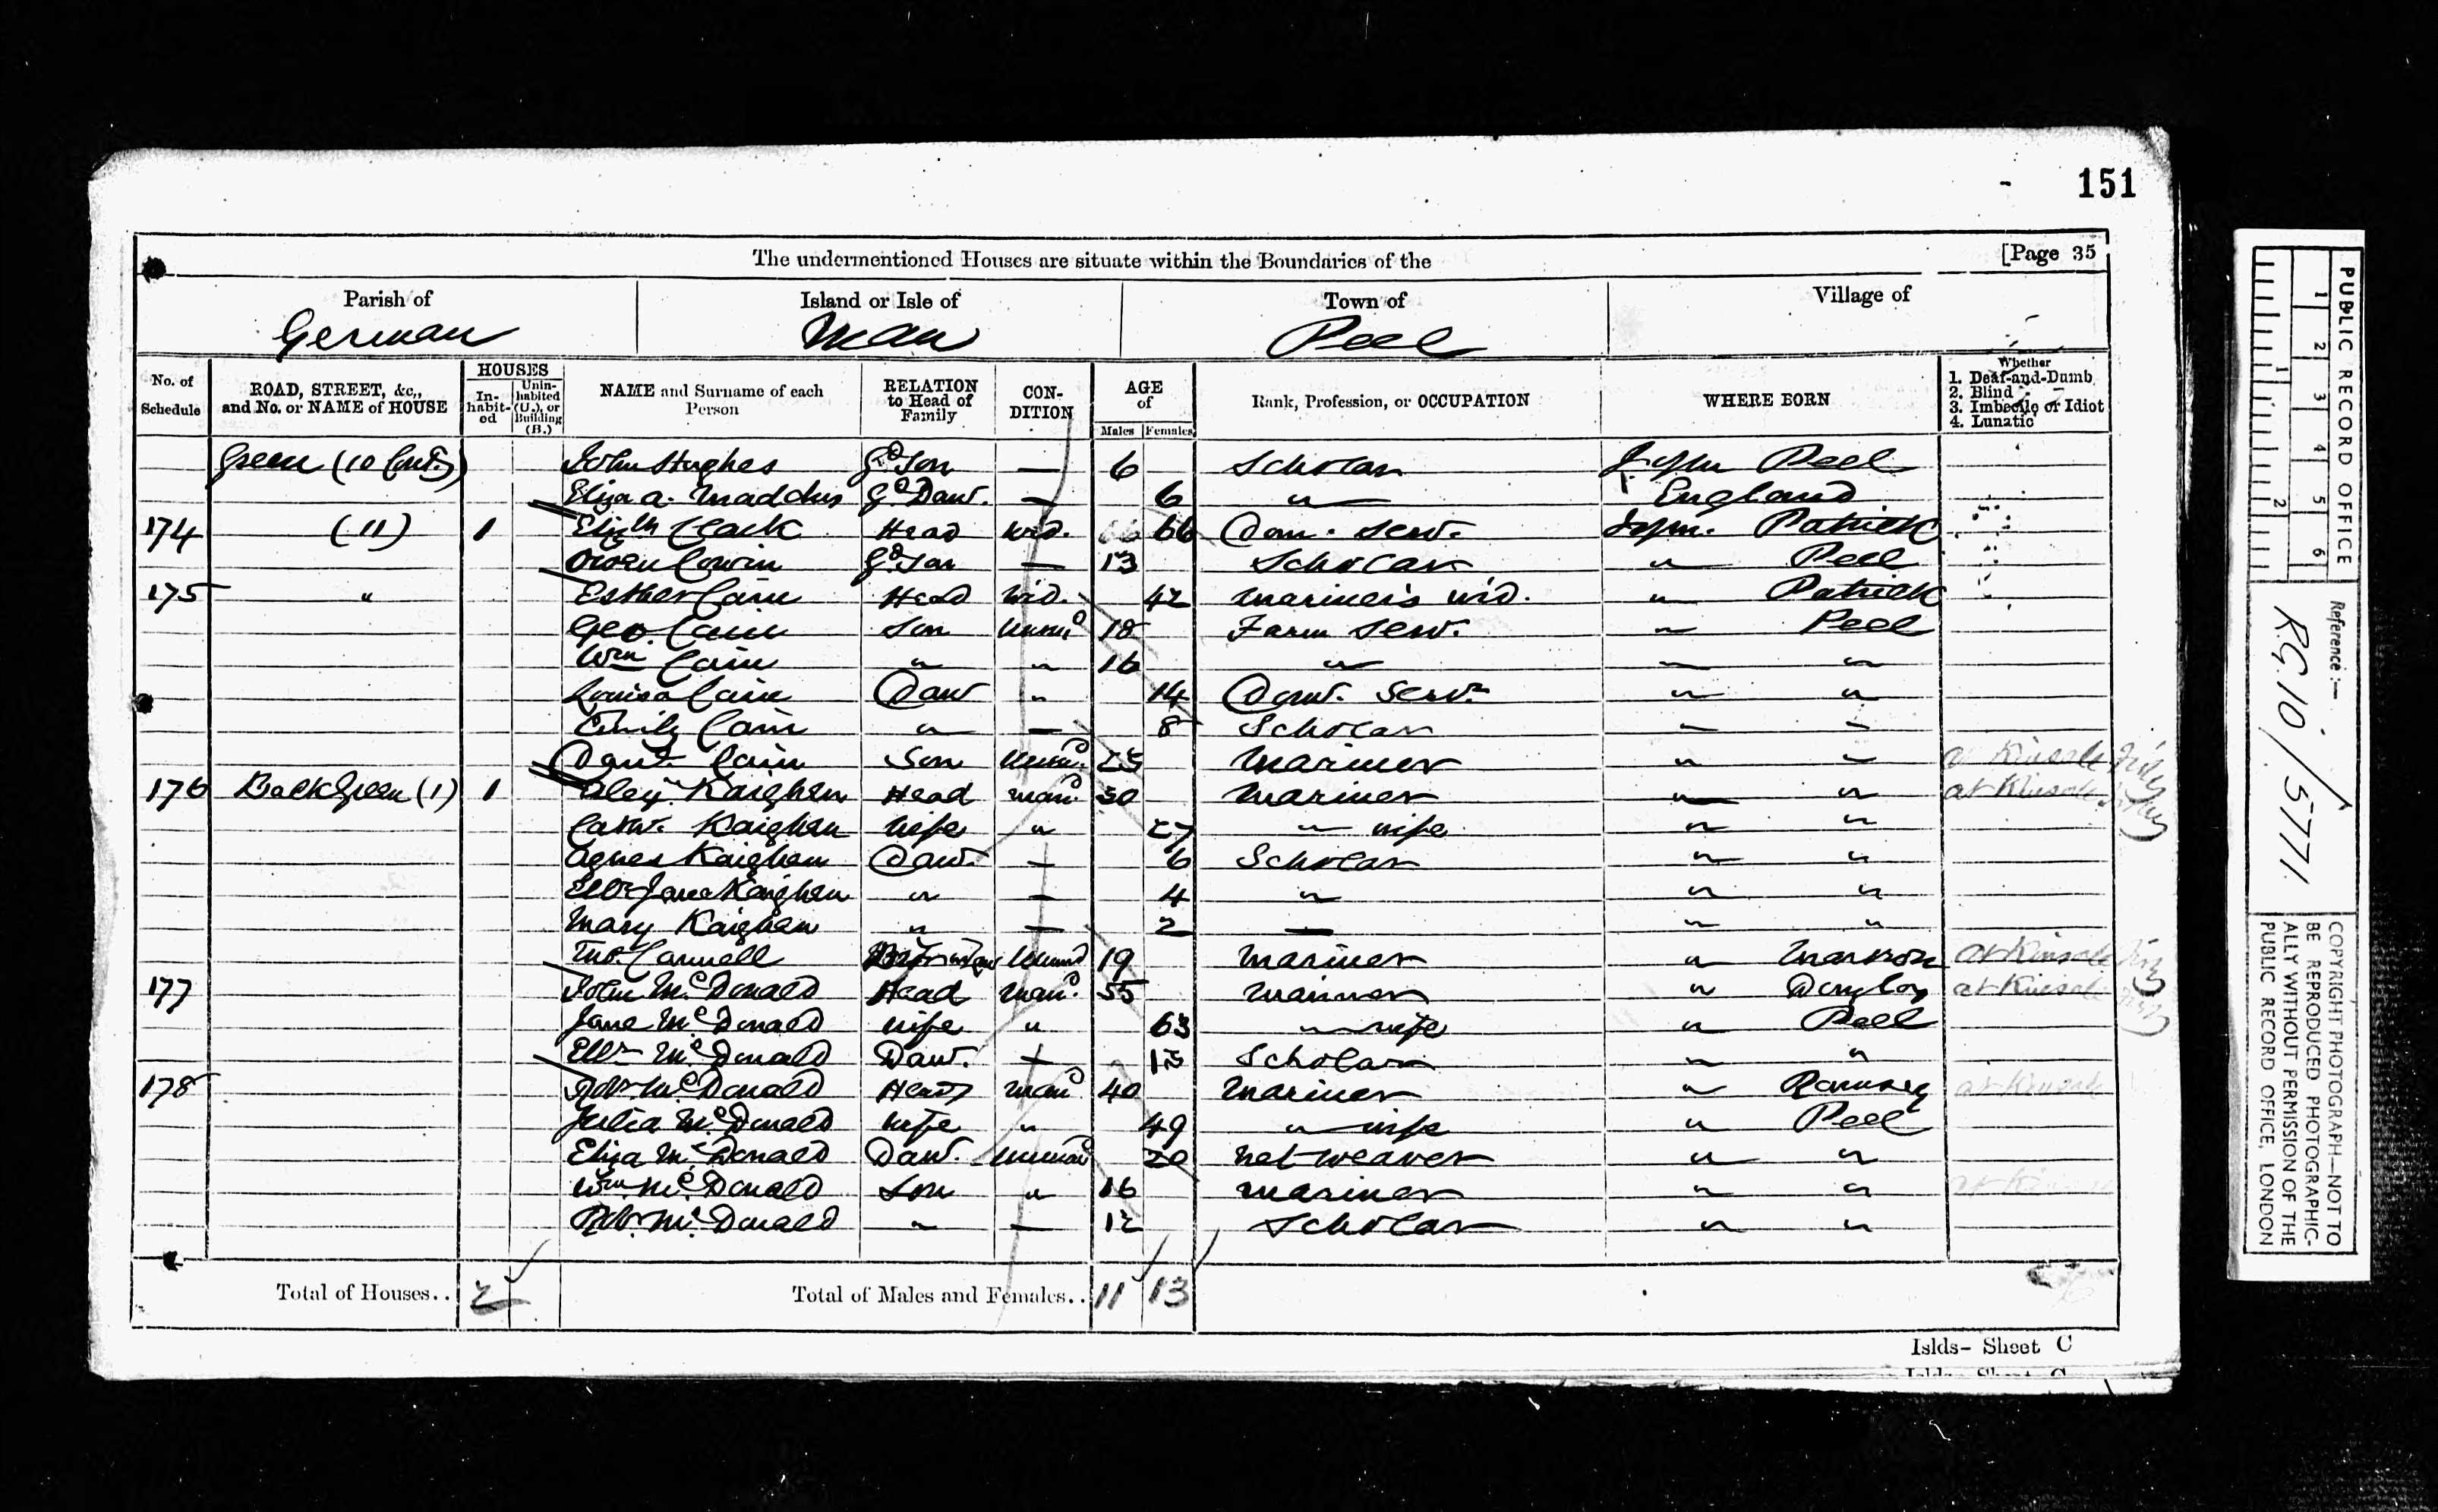 151
The undermentioned Houses are situate within the Boundaries of the [Page 35
Parish of Island or Isle of Town of Village of
German Man Peel
No. of Schedule ROAD, STREET, &c., and No. or NAME of HOUSE HOUSES In-habit-ed Unin-habited (U.), or Building (B.) NAME and Surname of each Person RELATION to Head of Family CON-DITION AGE of Males Females Rank, Profession, or OCCUPATION WHERE BORN Whether 1. Deaf-and-Dumb 2. Blind 3. Imbecile or Idiot 4. Lunatic
Green (10 Contd.) John Hughes Gd Son — 6 Scholar Peel
Eliza A. Maddus Gd Daur. — 6 " England
174 (11) 1 Elizth Clark Head Wid. 66 Dom. Serv. Patrick
Owen Cowin Gd Son — 13 Scholar " Peel
175 " Esther Cain Head Wid. 42 Mariner's Wid. " Patrick
Geo. Cain Son Unmd 18 Farm Serv. " Peel
Wm Cain " " 16 " " "
Louisa Cain Daur " 14 Dom. Servt " "
Emily Cain " — 8 Scholar " "
Danl Cain Son Unmd. 23 Mariner " " at Kinsale
176 Back Green (1) 1 Alexr. Kaighen Head Mard. 30 Mariner " " at Kinsale
Cathe. Kaighen Wife " 27 " Wife " "
Agnes Kaighen Daur. — 6 Scholar " "
Ellr Jane Kaighen " — 4 " " "
Mary Kaighen " — 2 — " "
Thos. Cannell Unmd 19 Mariner " at Kinsale
177 John McDonald Head Mard. 55 Mariner " Douglas at Kinsale
Jane McDonald Wife " 63 " Wife " Peel
Ellr McDonald Daur. — 12 Scholar " "
178 Robt. McDonald Head Mard 40 Mariner " Ramsey at Kinsale
Julia McDonald Wife " 49 " Wife " Peel
Eliza McDonald Daur. Unmard 20 Net Weaver " "
Wm. McDonald Son " 16 Mariner " "
Robt. McDonald " — 12 Scholar " "
Total of Houses.. 2 Total of Males and Females.. 11 13
Islds- Sheet C
PUBLIC RECORD OFFICE
1 2 3 4 5 6
1 2
Reference :—
R.G. 10 / 5771
COPYRIGHT PHOTOGRAPH—NOT TO BE REPRODUCED PHOTOGRAPHIC-ALLY WITHOUT PERMISSION OF THE PUBLIC RECORD OFFICE, LONDON